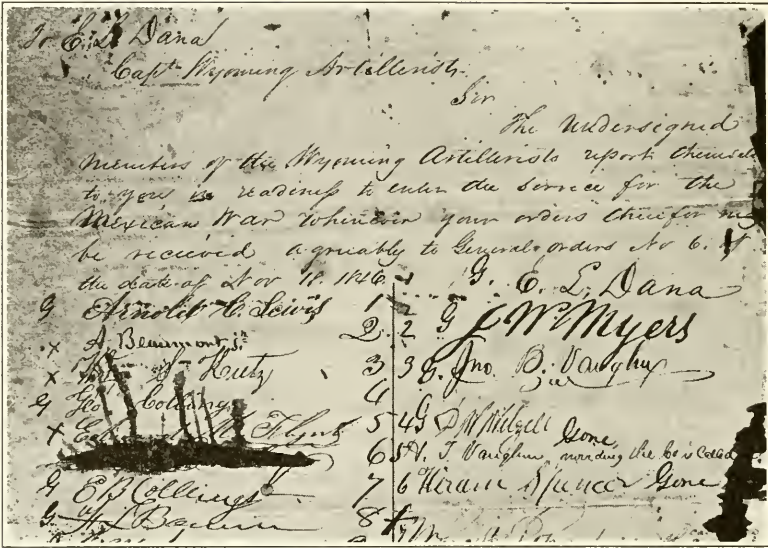 To E. L. Dana
Capt. Wyoming Artillerists.
Sir
The undersigned
members of the Wyoming Artillerists report themsel
to you in readiness to enter the service for the
Mexican War whenever your orders therefor may
be received agreeably to General orders No 6. of
the date of Nov 18. 1846.
G Arnold C. Lewis 1
x A. Beaumont jr. 2
x Kutz 3
G Geo Collings 4
x Flynt 5
6
G E B Collings 7
G 8
1 G. E. L. Dana
2 G J W Myers
3 G. Jno. B. Vaughn
4 G
5 A. T. Vaughn Gone, the Co is Called
6 Hiram Spencer Gone
7